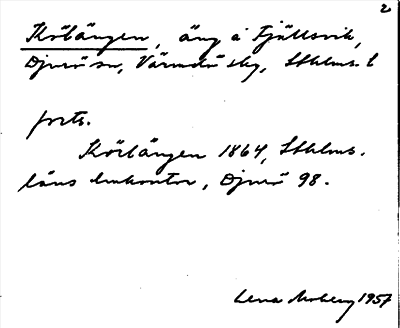 2
Körlängen, äng å Fjällsvik,
Djurö sn, Värmdö skg, Sthlms. l
forts.
Körlängen 1864, Sthlms.
läns lmkontor, Djurö 98.
Lena Moberg 1957